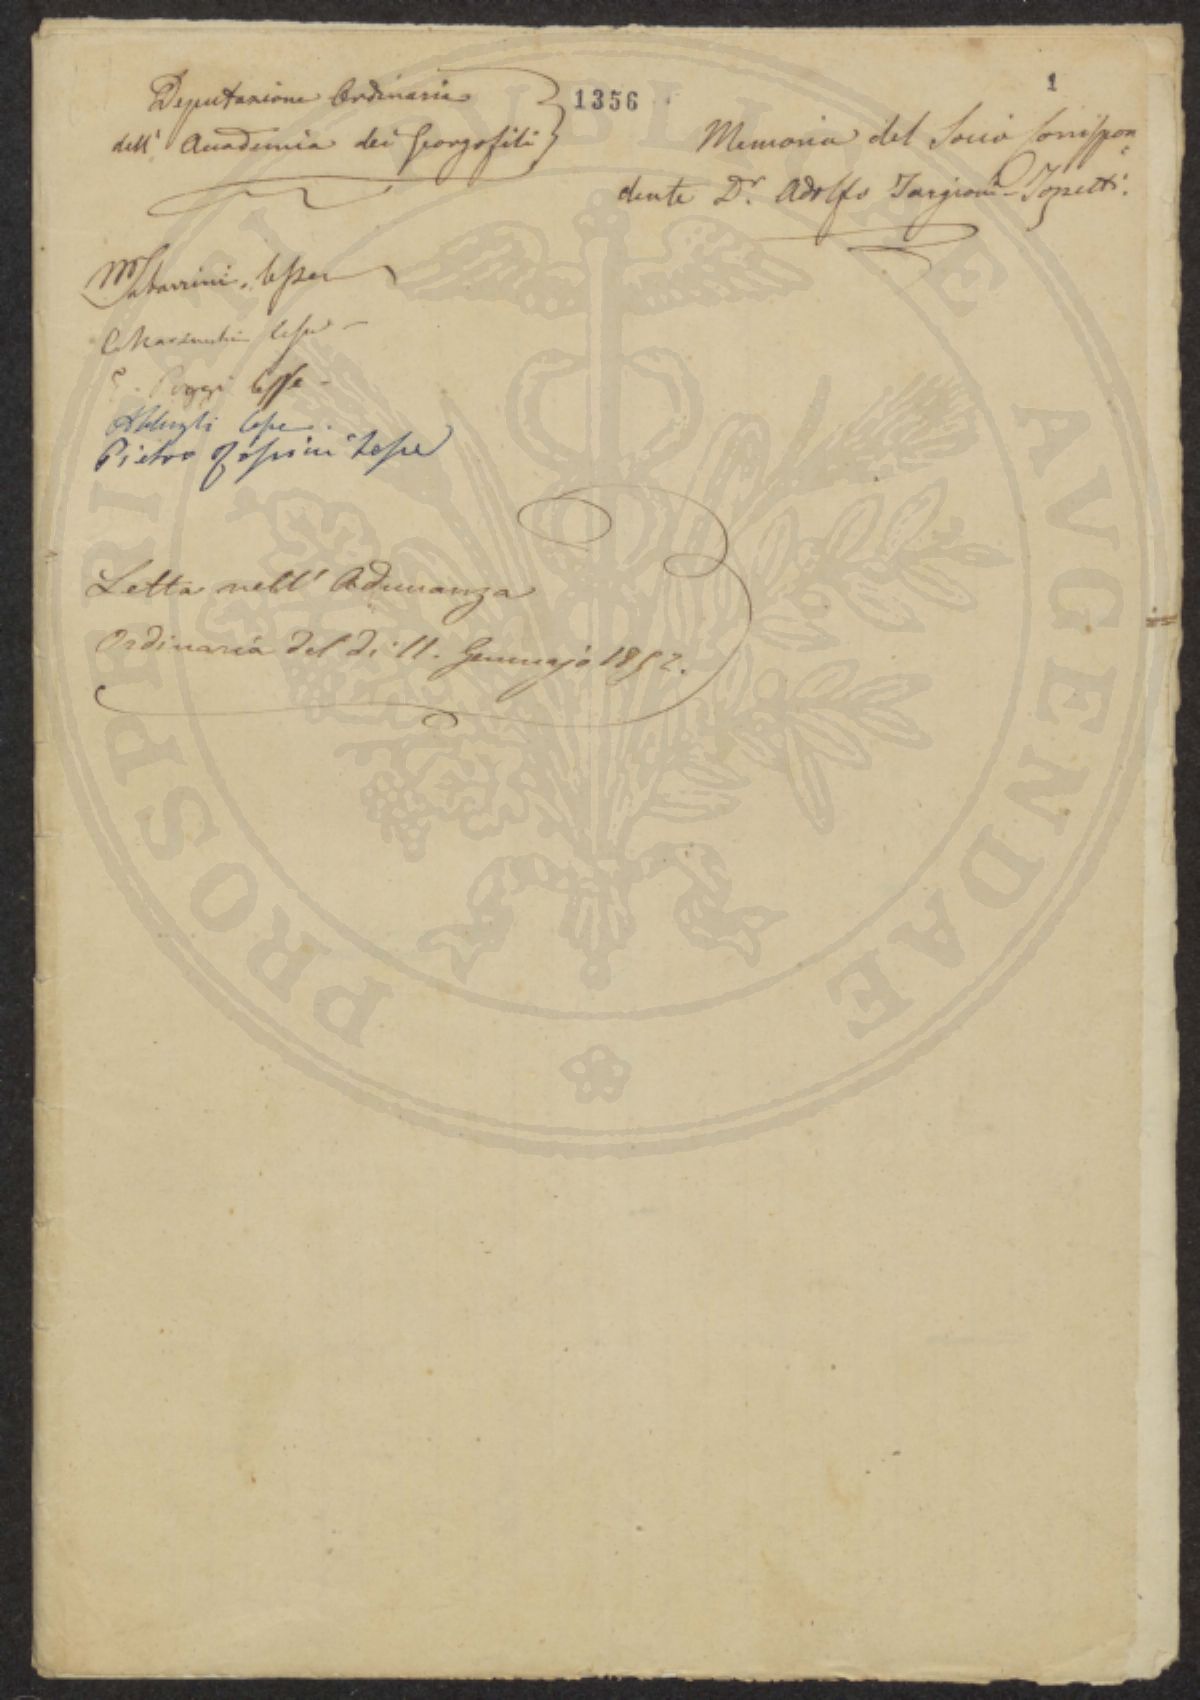 Deputazione Ordinaria
dell' Accademia dei Georgofili
1356
1
Memoria del Socio Corrispon=
dente D.r Adolfo Targioni-Tozzetti.
M Tabarrini. lesse
C Marzucchi lesse
E. Poggi lesse
lesse.
Pietro lesse
Letta nell' Adunanza
Ordinaria del dì 11. Gennajo 1852.
PROSPERITATI PUBLICAE AVGENDAE